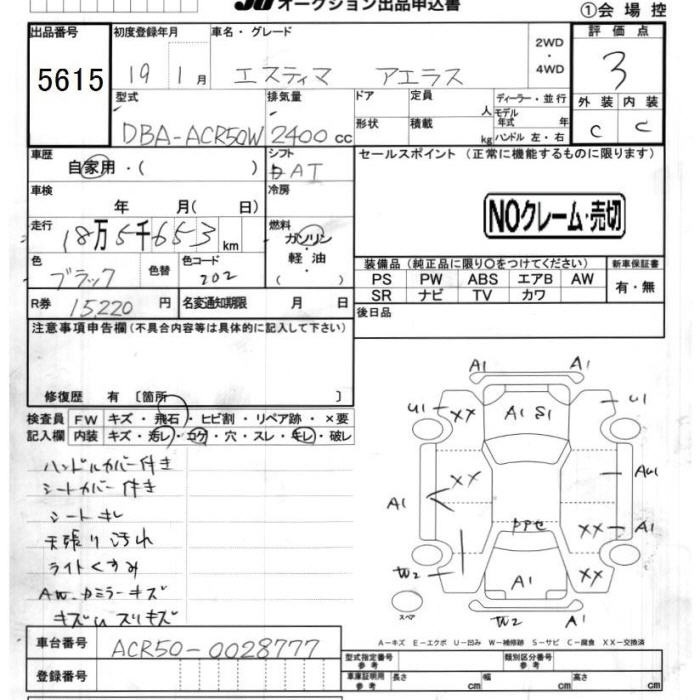 JU オークション出品申込書 ①会場控
出品番号 初度登録年月 車名・グレード 2WD・4WD 評価点
5615 19 1月 エスティマ アエラス 3
型式 排気量 ドア 定員 人 ディーラー・並行 外装 内装
DBA-ACR50W 2400cc 形状 積載 kg モデル年式 年 ハンドル 左・右 C C
車歴 シフト セールスポイント (正常に機能するものに限ります)
自家用・( ) AT
車検 冷房
年 月( 日) NOクレーム・売切
走行 燃料
18万5千653km ガソリン
色 色替 色コード 軽油 装備品 (純正品に限り○をつけてください) 新車保証書
ブラック 202 ( ) PS PW ABS エアB AW 有・無
SR ナビ TV カワ
R券 15,220円 名変通知期限 月 日 後日品
注意事項申告欄 (不具合内容等は具体的に記入して下さい)
修復歴 有 〔箇所 〕
検査員 FW キズ・飛石・ヒビ割・リペア跡・×要
記入欄 内装 キズ・汚レ・コゲ・穴・スレ・キレ・破レ
ハンドルカバー付き
シートカバー付き
シートキレ
天張り汚れ
ライトくすみ
AW.カミラーキズ
キズUスリキズ
A1 A1
U1 XX A1 S1 U1
XX AU1
A1 XX A1
W2 A1 XX
スペア W2 A1
A-キズ E-エクボ U-凹み W-補修跡 S-サビ C-腐食 XX-交換済
車台番号 ACR50-0028777 型式指定番号 参考 類別区分番号 参考
登録番号 車庫証明用 参考 長さ cm 幅 cm 高さ cm